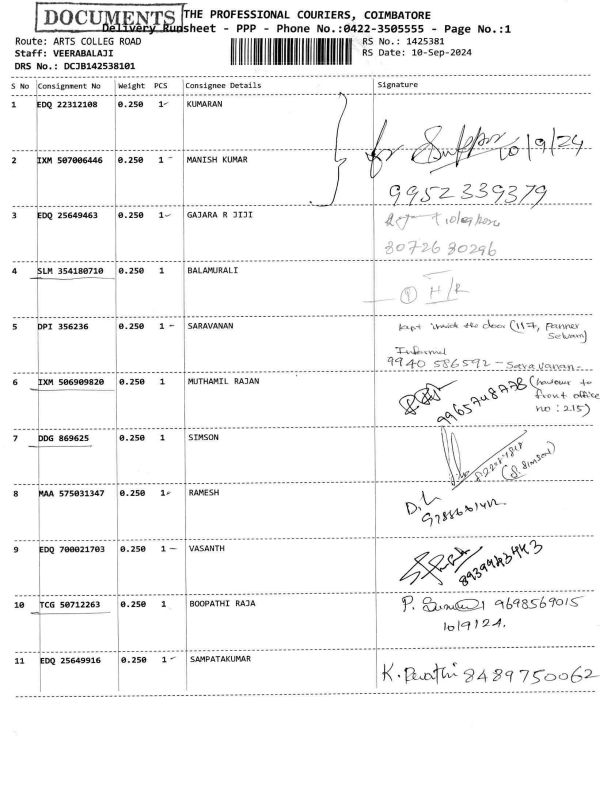 DOCUMENTS
THE PROFESSIONAL COURIERS, COIMBATORE
Delivery Runsheet - PPP - Phone No.:0422-3505555 - Page No.:1
Route: ARTS COLLEG ROAD
RS No.: 1425381
Staff: VEERABALAJI
RS Date: 10-Sep-2024
DRS No.: DCJB142538101
S No Consignment No Weight PCS Consignee Details Signature
1 EDQ 22312108 0.250 1 KUMARAN
for 10/9/24
2 IXM 507006446 0.250 1 MANISH KUMAR
9952339379
3 EDQ 25649463 0.250 1 GAJARA R JIJI
80726 80296
4 SLM 354180710 0.250 1 BALAMURALI
H/R
5 DPI 356236 0.250 1 SARAVANAN
kept inside the door (117, Panner
Selvam)
Informed
9940 586592 - Saravanan-
6 IXM 506909820 0.250 1 MUTHAMIL RAJAN
9965748778 (handover to
front office
no: 215)
7 DDG 869625 0.250 1 SIMSON
(S. Simson)
8 MAA 575031347 0.250 1 RAMESH
D.L
9 EDQ 700021703 0.250 1 VASANTH
8939943443
10 TCG 50712263 0.250 1 BOOPATHI RAJA
P. 9698569015
10/9/24.
11 EDQ 25649916 0.250 1 SAMPATAKUMAR
K. Revathi 8489750062